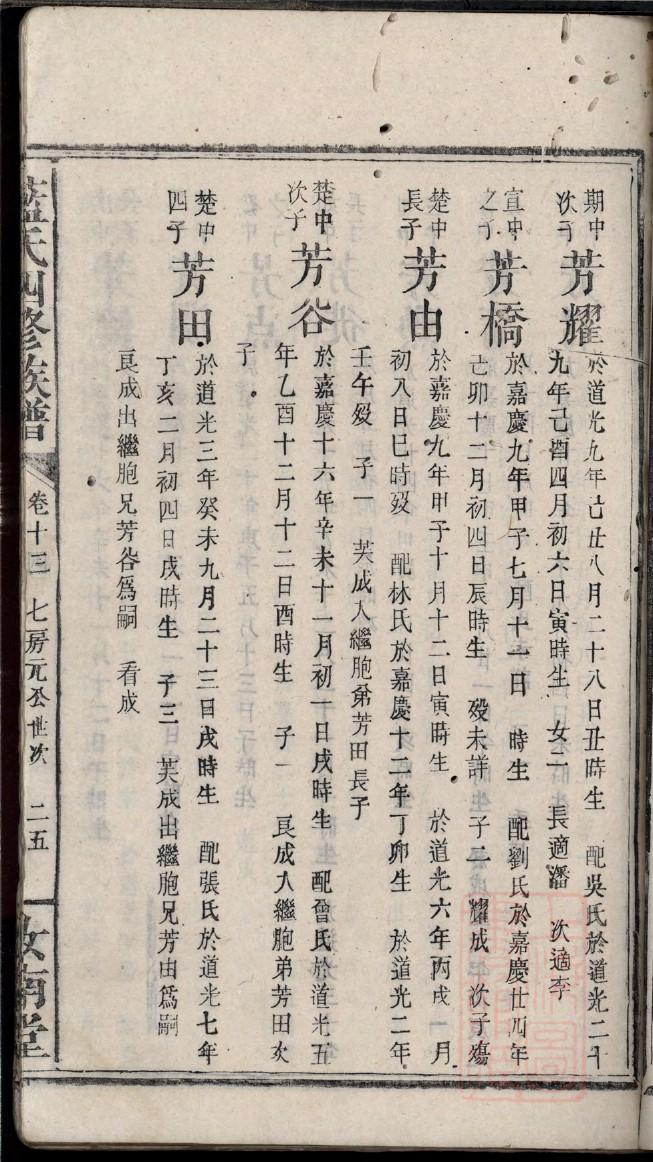 期中
次子
芳耀
於道光九年己丑八月二十八日丑時生 配吳氏於道光二十
九年己酉四月初六日寅時生 女二 長適潘 次適李
宣中
之子
芳橋
於嘉慶九年甲子七月十一日 時生 配劉氏於嘉慶廿四年
己卯十二月初四日辰時生 歿未詳 子二 耀成 次子殤
楚中
長子
芳由
於嘉慶九年甲子十月十二日寅時生 於道光六年丙戌一月
初八日巳時歿 配林氏於嘉慶十二年丁卯生 於道光二年
壬午歿 子一 芙成入繼胞弟芳田長子
楚中
次子
芳谷
於嘉慶十六年辛未十一月初一日戌時生 配曾氏於道光五
年乙酉十二月十二日酉時生 子一 良成入繼胞弟芳田次
子
楚中
四子
芳田
於道光三年癸未九月二十三日戌時生 配張氏於道光七年
丁亥二月初四日戌時生 子三 芙成出繼胞兄芳由爲嗣
良成出繼胞兄芳谷爲嗣 看成
藍氏四修族譜 卷十三 七房元公世次 二五 汝南堂